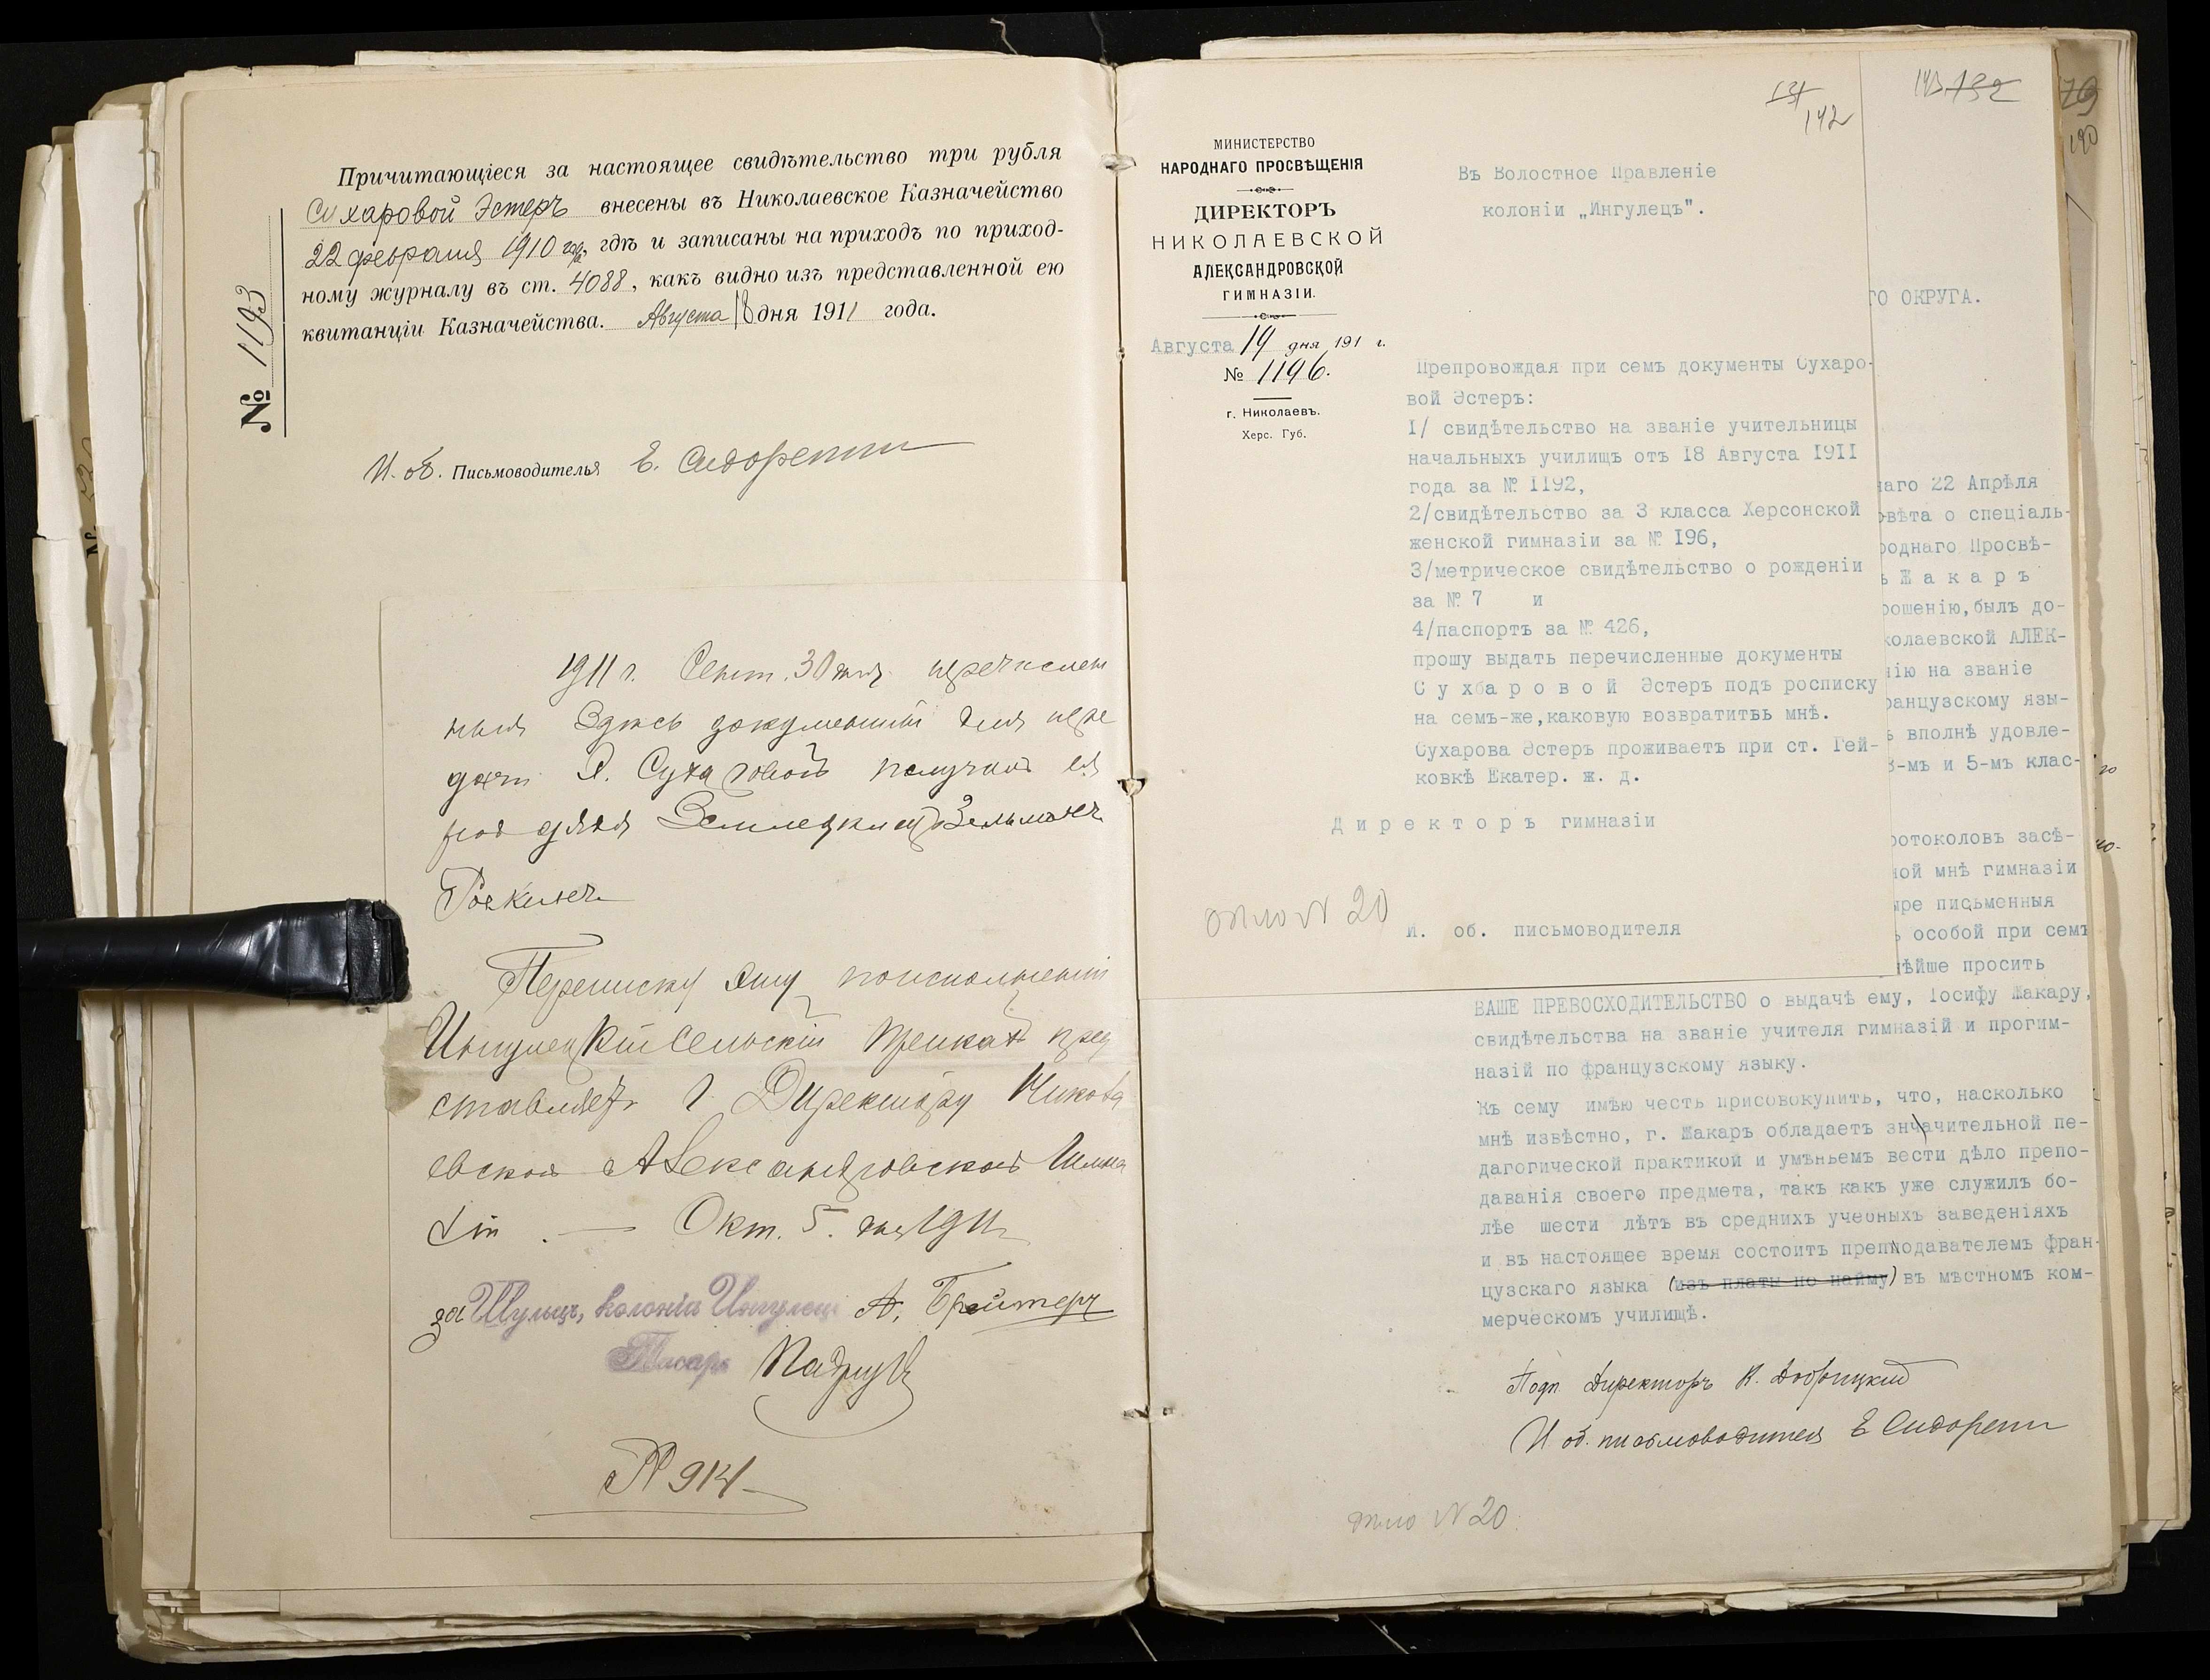 Причитающіеся за настоящее свидѣтельство три рубля
Сухаровой Эстеръ внесены въ Николаевское Казначейство
22 февраля 1910 года, гдѣ и записаны на приходъ по приход-
ному журналу въ ст. 4088, какъ видно изъ представленной ею
квитанціи Казначейства. Августа 18 дня 1911 года.
№ 1193
И. об. Письмоводителя Е. Сидоренко
1911 г. Сент. 30 дня перечислен
ныя здѣсь документы для пере
дачи Э. Сухаровой получилъ ея
дядя Землевладѣлецъ Зельманъ
Переписку сію по исполненіи
Ингулецкій Сельскій Приказъ пред
ставляетъ Г. Директору Никола
евской Александровской Гимна
зіи. — Окт. 5 дня 1911 г.
за Шульцъ, колоніи Ингулецъ А. Брейтеръ
Писарь
№ 914
131
142
МИНИСТЕРСТВО
НАРОДНАГО ПРОСВѢЩЕНІЯ
ДИРЕКТОРЪ
НИКОЛАЕВСКОЙ
АЛЕКСАНДРОВСКОЙ
ГИМНАЗІИ.
Августа 19 дня 191 г.
№ 1196.
г. Николаевъ.
Херс. Губ.
Въ Волостное Правленіе
колоніи „Ингулецъ".
Препровождая при семъ документы Сухаро-
вой Эстеръ:
I/ свидѣтельство на званіе учительницы
начальныхъ училищъ отъ I8 Августа I9II
года за № II92,
2/свидѣтельство за 3 класса Херсонской
женской гимназіи за № I96,
3/метрическое свидѣтельство о рожденіи
за № 7 и
4/паспортъ за № 426,
прошу выдать перечисленные документы
С у х а р о в о й Эстеръ подъ росписку
на семъ-же,каковую возвратить мнѣ.
Сухарова Эстеръ проживаетъ при ст. Гей-
ковкѣ Екатер. ж. д.
Д и р е к т о р ъ гимназіи
И. об. письмоводителя
дѣло № 20
143 132
79
190
ГО ОКРУГА.
наго 22 Апрѣля
овѣта о спеціаль-
роднаго Просвѣ-
ъ Ж а к а р ъ
рошенію,былъ до-
колаевской АЛЕК-
нію на званіе
ранцузскому язы-
ъ вполнѣ удовле-
3-мъ и 5-мъ клас-
ротоколовъ засѣ-
ной мнѣ гимназіи
ыре письменныя
ъ особой при семъ
нѣйше просить
ВАШЕ ПРЕВОСХОДИТЕЛЬСТВО о выдачѣ ему, Іосифу Жакару,
свидѣтельства на званіе учителя гимназій и прогим-
назій по французскому языку.
Къ сему имѣю честь присовокупить, что, насколько
мнѣ извѣстно, г. Жакаръ обладаетъ значительной пе-
дагогической практикой и умѣньемъ вести дѣло препо-
даванія своего предмета, такъ какъ уже служилъ бо-
лѣе шести лѣтъ въ среднихъ учебныхъ заведеніяхъ
и въ настоящее время состоитъ преподавателемъ фран-
цузскаго языка (изъ платы по найму) въ мѣстномъ ком-
мерческомъ училищѣ.
Подп. Директоръ Н. Добрицкій
И об. письмоводителя Е Сидоренко
дѣло № 20.